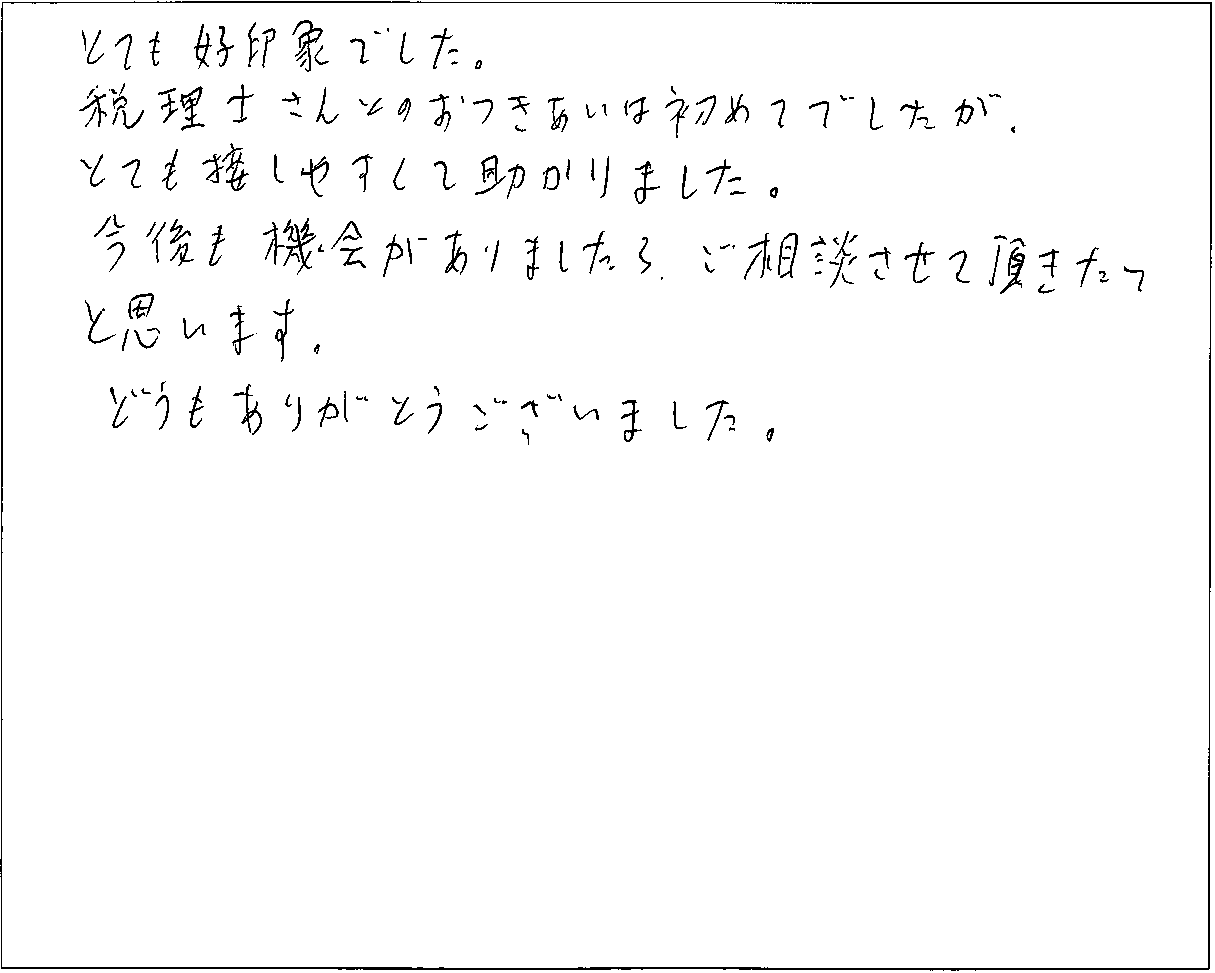 とても好印象でした。
税理士さんとのおつきあいは初めてでしたが、
とても接しやすくて助かりました。
今後も機会がありましたら、ご相談させて頂きたい
と思います。
どうもありがとうございました。